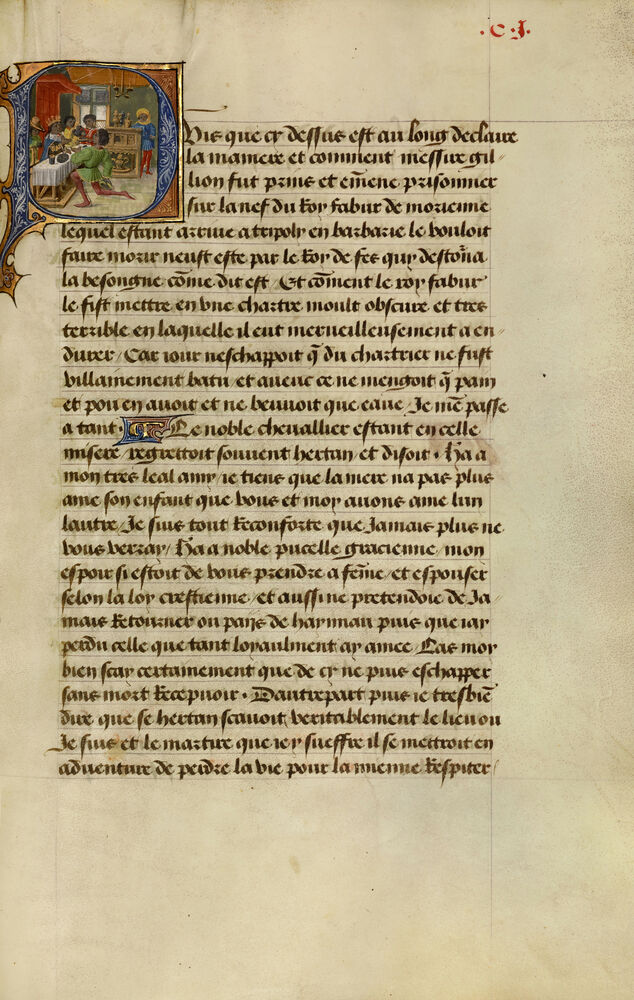 .C.J.
Puis que cy dessus est au long declaire
la maniere et comment messire gil-
lion fut prins et emene prisonnier
sur la nef du Roy fabur de morienne
lequel estant arrive a tripoly en barbarie le vouloit
faire morir neust este par le Roy de fes quy destorna
la besongne cōme dit est / Et cōment le roy fabur
le fist mettre en une chartre moult obscure et tres
terrible en laquelle il eut merveilleusement a en-
durer / Car iour neschappoit q̄ du chartrier ne fust
villainement batu et avecc ce ne mengoit q̄ pain
et pou en avoit et ne beuvoit que eaue Je mē passe
a tant. Le noble chevallier estant en celle
misere regrettoit souvent hertan et disoit. Ha a
mon tres leal amy ie tiens que la mere na pas plus
ame son enfant que vous et moy avons ame lun
lautre / Je suis tout Reconforte que Jamais plus ne
vous verray / Ha a noble pucelle gracienne mon
espoir si estoit de vous prendre a fēme et espouser
selon la loy crestienne et aussi ne pretendoie de Ja
mais Retourner ou pays de haynnau puis que iay
perdu celle que tant loyaulment ay amee / Las moy
bien scay certainement que de cy ne puis eschapper
sans mort Recepvoir. Dautrepart puis ie tresbiē
dire que se hertan scavoit veritablement le lieu ou
Je suis et le martire que iey sueffre il se mettroit en
adventure de perdre la vie pour la mienne Respiter /